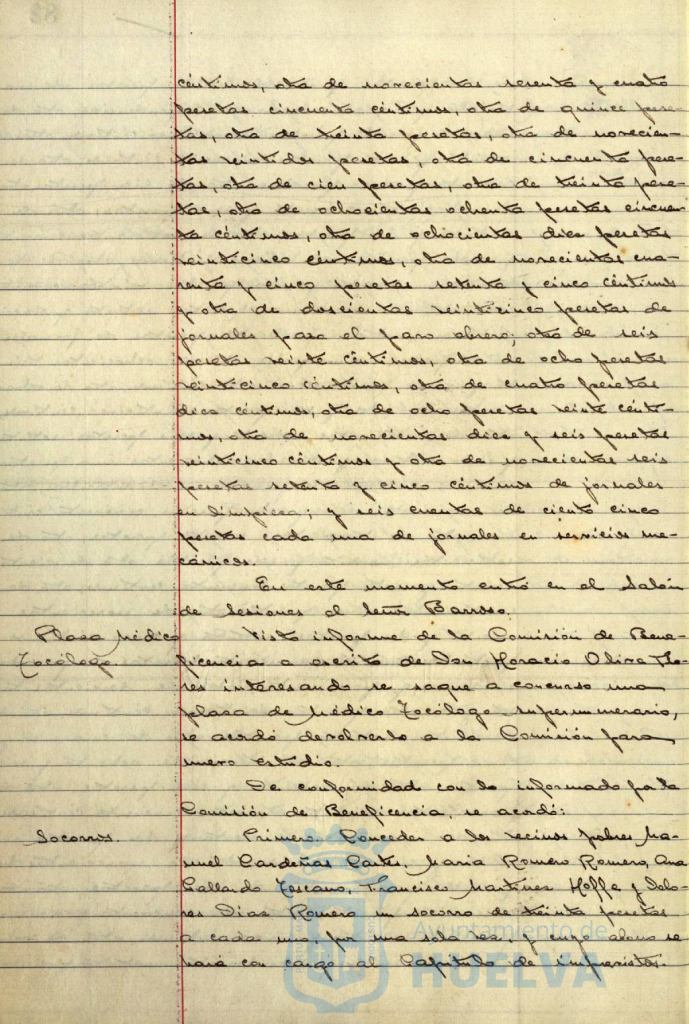 céntimos, otra de novecientas sesenta y cuatro
pesetas cincuenta céntimos, otra de quince pese-
tas, otra de treinta pesetas, otra de novecien-
tas veintidos pesetas, otra de cincuenta pese-
tas, otra de cien pesetas, otra de treinta pese-
tas, otra de ochocientas ochenta pesetas cincuen-
ta céntimos, otra de ochocientas diez pesetas
veinticinco céntimos, otra de novecientas cua-
renta y cinco pesetas setenta y cinco céntimos
y otra de doscientas veinticinco pesetas de
jornales para el paro obrero; otra de seis
pesetas veinte céntimos, otra de ocho pesetas
veinticinco céntimos, otra de cuatro pesetas
diez céntimos, otra de ocho pesetas veinte cénti-
mos, otra de novecientas diez y seis pesetas
veinticinco céntimos y otra de novecientas seis
pesetas setenta y cinco céntimos de jornales
en limpieza; y seis cuentas de ciento cinco
pesetas cada una de jornales en servicios me-
cánicos.
En este momento entró en el Salón
de Sesiones el Señor Barroso.
Plaza Médico
Tocólogo.
Visto informe de la Comisión de Bene-
ficencia a escrito de Don Horacio Oliva Flo-
res interesando se saque a concurso una
plaza de Médico Tocólogo supernumerario,
se acordó devolverlo a la Comisión para
nuevo estudio.
De conformidad con lo informado por la
Comisión de Beneficencia, se acordó:
Socorros.
Primero. Conceder a los vecinos pobres Ma-
nuel Cardeñas Cortés, Maria Romero Romero, Ana
Gallardo Toscano, Francisco Martinez Hoffe y Dolo-
res Díaz Romero un socorro de treinta pesetas
a cada uno, por una sola vez, y cuyo abono se
hará con cargo al Capítulo de imprevistos.
Ayuntamiento de
HUELVA